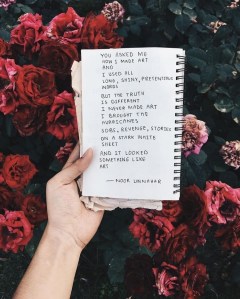 YOU ASKED ME
HOW I MADE ART
AND
I USED ALL
LONG, SHINY, PRETENTIOUS
WORDS
BUT THE TRUTH
IS DIFFERENT
I NEVER MADE ART
I BROUGHT THE
HURRICANES
SOBS, REVENGE, STORIES
ON A STARK WHITE
SHEET
AND IT LOOKED
SOMETHING LIKE
ART
— NOOR UNNAHAR